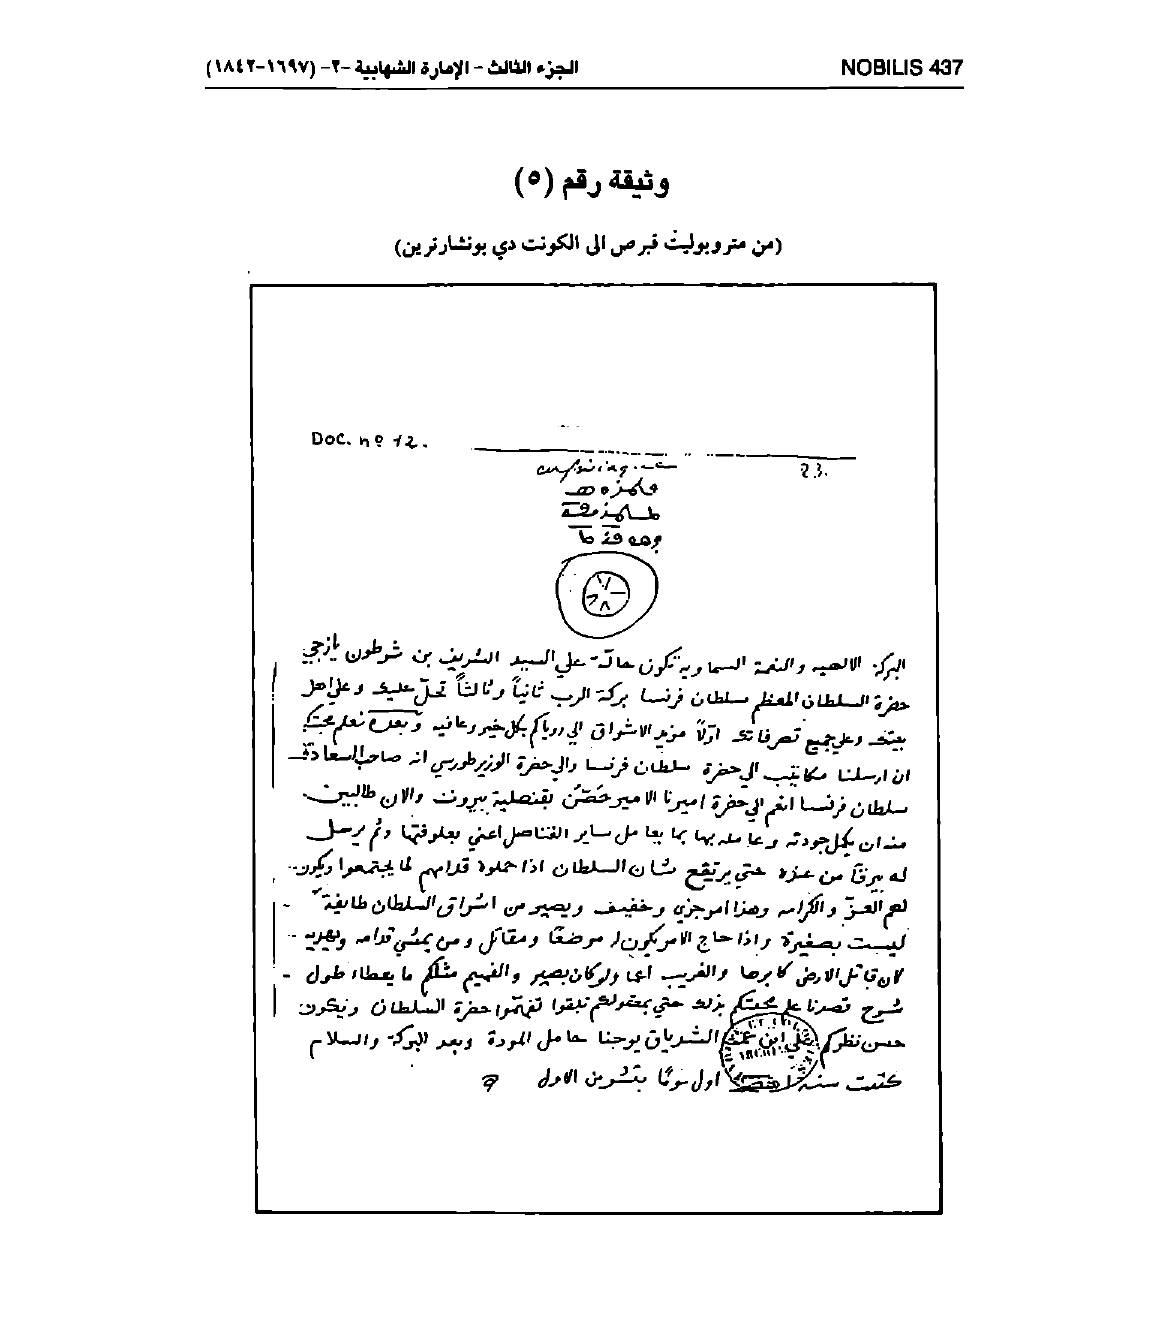 NOBILIS 437
الجزء الثالث - الإمارة الشهابية -٢- (١٦٩٧-١٨٤٢)
وثيقة رقم (٥)
(من متروبوليت قبرص الى الكونت دي بونشارترين)
Doc. nº 12.
23.
البركة الالهيه والنعمة السماويه تكون حالّة علي السيد الشريف بن شرطون يازجي
حضرة السلطان المعظم سلطان فرنسا بركة الرب ثانياً وثالثاً تحلّ عليك وعلي اهل
بيتك وعلي جميع تصرفاتك اوّلاً مزيد الاشواق الي روياكم بكل خير وعافيه وبعده نعلم محبتكم
ان ارسلنا مكاتيب الي حضرة سلطان فرنسا والي حضرة الوزير طورسي انه صاحب السعادة
سلطان فرنسا انعم الي حضرة اميرنا الامير حَصَن بقنصلية بيروت والان طالبين
منه ان يكمل جودته وعامله بها بما يعامل ساير القناصل اعني بعلوفتها وثم يرسل
له بيرقاً من عنده حتي يرتفع شان السلطان اذا حملوه قدامهم لما يجتمعوا ويكون
لهم العزّ والكرامه وهذا امر جزي وخفيف ويصير من اشراق السلطان طايفة
ليست بصغيرة واذا حاج الامر يكون له موضعًا ومقاتل ومن يمشي قدامه
كان قاتل الارض والغريب اعما ولو كان بصير والفهيم مثلكم ما يعطاء طول
شرح قصدنا علي محبتكم بذلك حتي بمعقولكم تبقوا تفهّموا حضرة السلطان ونكون
حسن نظركم علي ابن الشرياق يوحنا حامل المودة وبعد البركة والسلام
كتبت سنة اول يوم بتشرين الاول